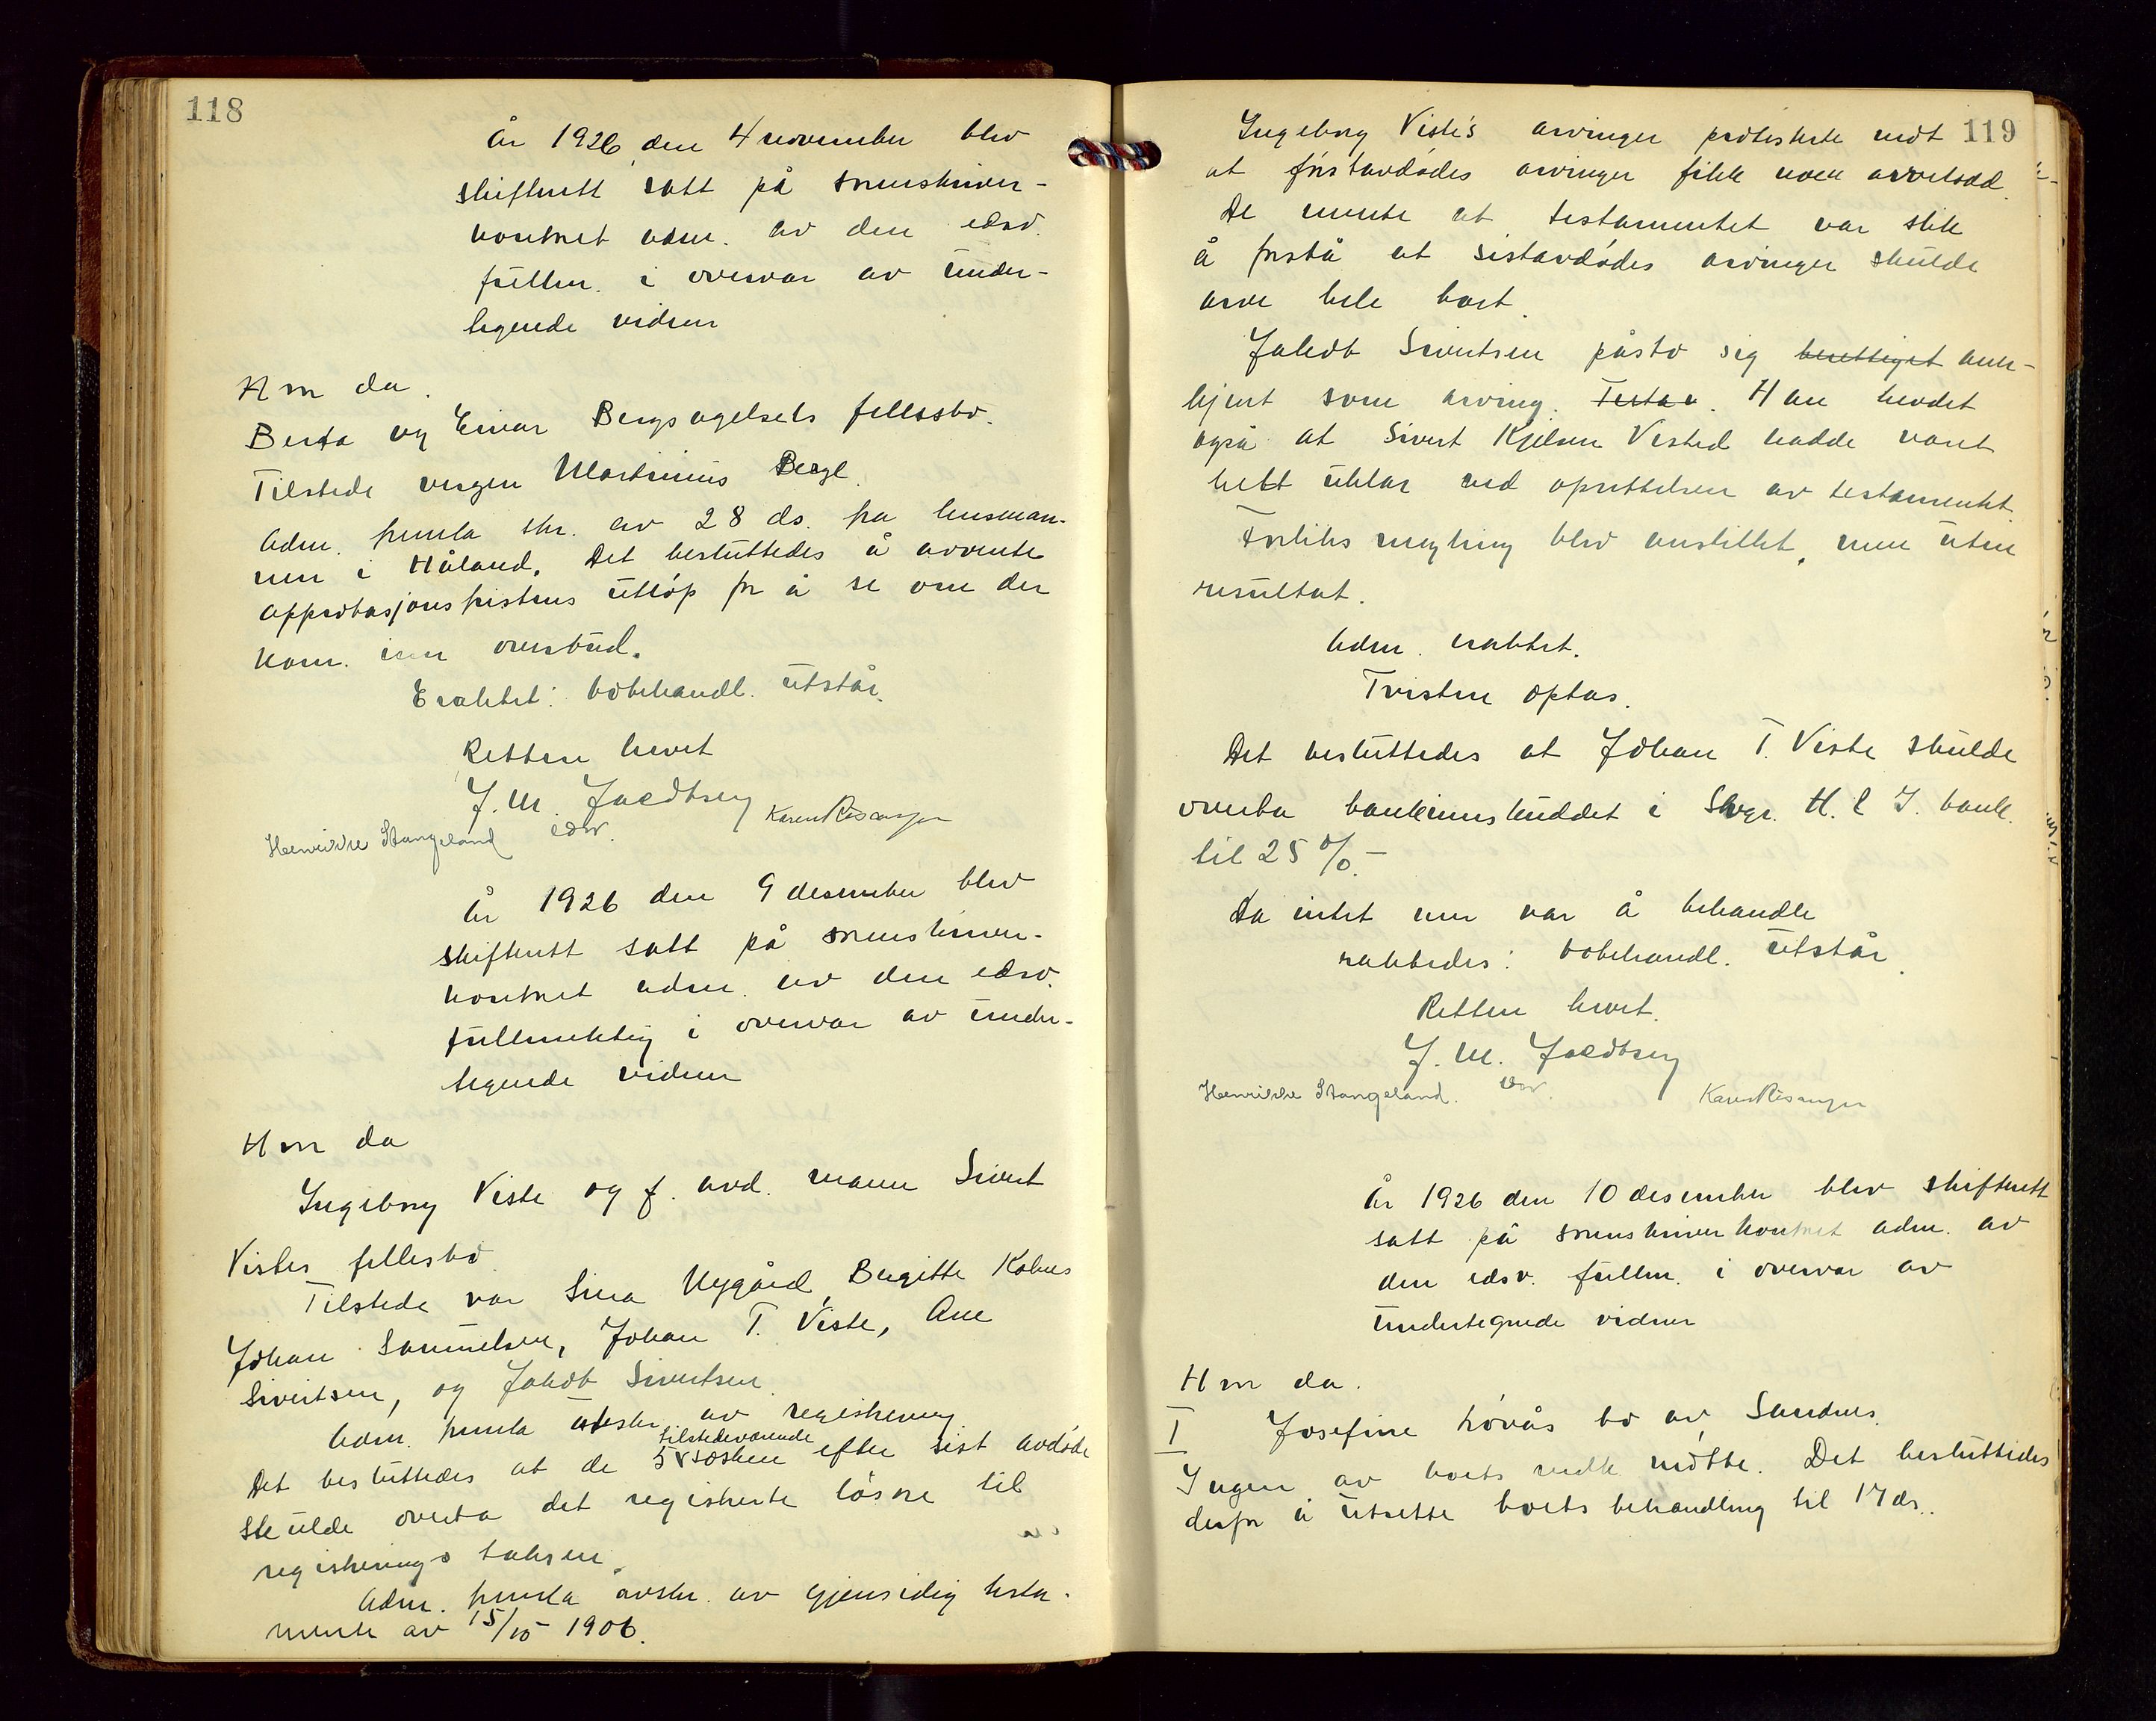 118
År 1926 den 4 november blev
skifterett satt på sorenskriver-
kontoret adm. av den edsv.
fullm. i overvær av under-
tegnede vidner
Hvor da.
Berta og Einar Bergsagelsels fellesbo.
Tilstede vergen Martinius Bergl.
Adm. fremla skr. av 28 ds. fra lensman-
nen i Håland. Det besluttedes å avvente
approbasjonsfristens utløp for å se om der
kom. inn overbud.
Eraktet: bobehandl. utstår.
Retten hevet
J. M. Jacobsen
edsv.
Henrikke Stangeland
Karen Risanger
År 1926 den 9 desember blev
skifterett satt på sorenskriver-
kontoret adm. av den edsv.
fullmektig i overvær av under-
tegnede vidner
Hvor da
Ingeborg Viste og f. avd. mann Sivert
Vistes fellesbo
Tilstede var Sina Nygård, Bergitte Kolnes
Johan Samuelsen, Johan T. Viste, Ane
Sivertsen, og Jakob Sivertsen.
Adm. fremla utskr. av registrering.
Det besluttedes at de 5 tilstedeværende søsken efter sist avdøde
skulde overta det registrerte løsøre til
registrerings taksen.
Adm. fremla avskr. av gjensidig testa-
mente av 15/10 1906.
119
Ingeborg Viste's arvinger protesterte mot
at førstavdødes arvinger fikk noen arvelodd.
De mente at testamentet var slik
å forstå at sistavdødes arvinger skulde
arve hele boet.
Jakob Sivertsen påsto sig berettiget aner-
kjent som arving. Testa Han hevdet
også at Sivert Kjelsen Visted hadde vært
helt uklar ved oprettelsen av testamentet.
Forliks megling blev anstillet, men uten
resultat.
Adm. eraktet.
Tvisten optas.
Det besluttedes at Johan T. Viste skulde
overta bankinnskuddet i Stvgr. H. & I. bank
til 25 %.-
Da intet mer var å behandle
eraktedes: bobehandl. utstår.
Retten hevet.
J. M. Jacobsen
edsv.
Henrikke Stangeland.
Karen Risanger
År 1926 den 10 desember blev skifterett
satt på sorenskriverkontoret adm. av
den edsv. fullm. i overvær av
undertegnede vidner
Hvor da.
I Josefine Løvås bo av Sandnes.
Ingen av boets vedk. møtte. Det besluttedes
derfor å utsette boets behandling til 17 ds.